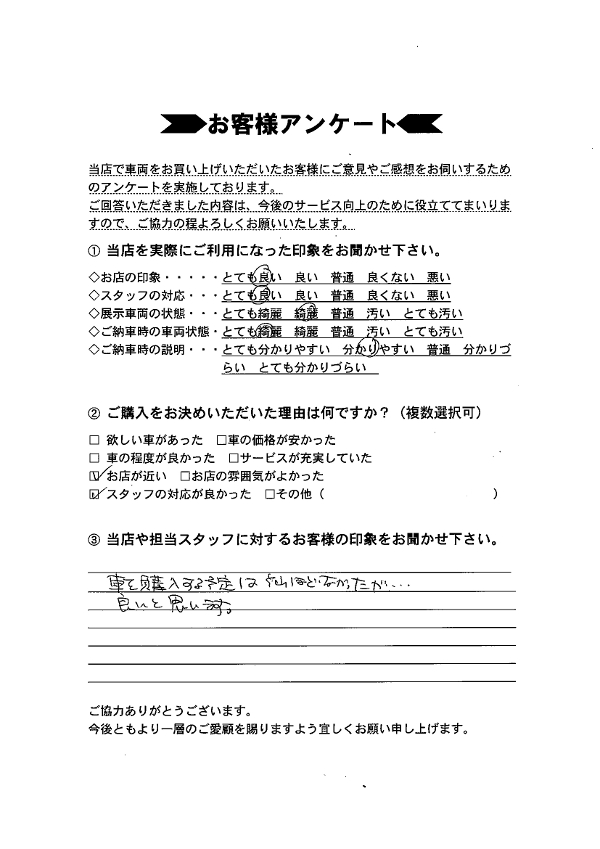 お客様アンケート
当店で車両をお買い上げいただいたお客様にご意見やご感想をお伺いするため
のアンケートを実施しております。
ご回答いただきました内容は、今後のサービス向上のために役立ててまいりま
すので、ご協力の程よろしくお願いいたします。
① 当店を実際にご利用になった印象をお聞かせ下さい。
◇お店の印象・・・・・とても良い 良い 普通 良くない 悪い
◇スタッフの対応・・・とても良い 良い 普通 良くない 悪い
◇展示車両の状態・・・とても綺麗 綺麗 普通 汚い とても汚い
◇ご納車時の車両状態・とても綺麗 綺麗 普通 汚い とても汚い
◇ご納車時の説明・・・とても分かりやすい 分かりやすい 普通 分かりづ
らい とても分かりづらい
② ご購入をお決めいただいた理由は何ですか？（複数選択可）
□ 欲しい車があった □車の価格が安かった
□ 車の程度が良かった □サービスが充実していた
☑お店が近い □お店の雰囲気がよかった
☑スタッフの対応が良かった □その他（ ）
③ 当店や担当スタッフに対するお客様の印象をお聞かせ下さい。
車を購入する予定は ほどなかったが…
良いと思います。
ご協力ありがとうございます。
今後ともより一層のご愛顧を賜りますよう宜しくお願い申し上げます。